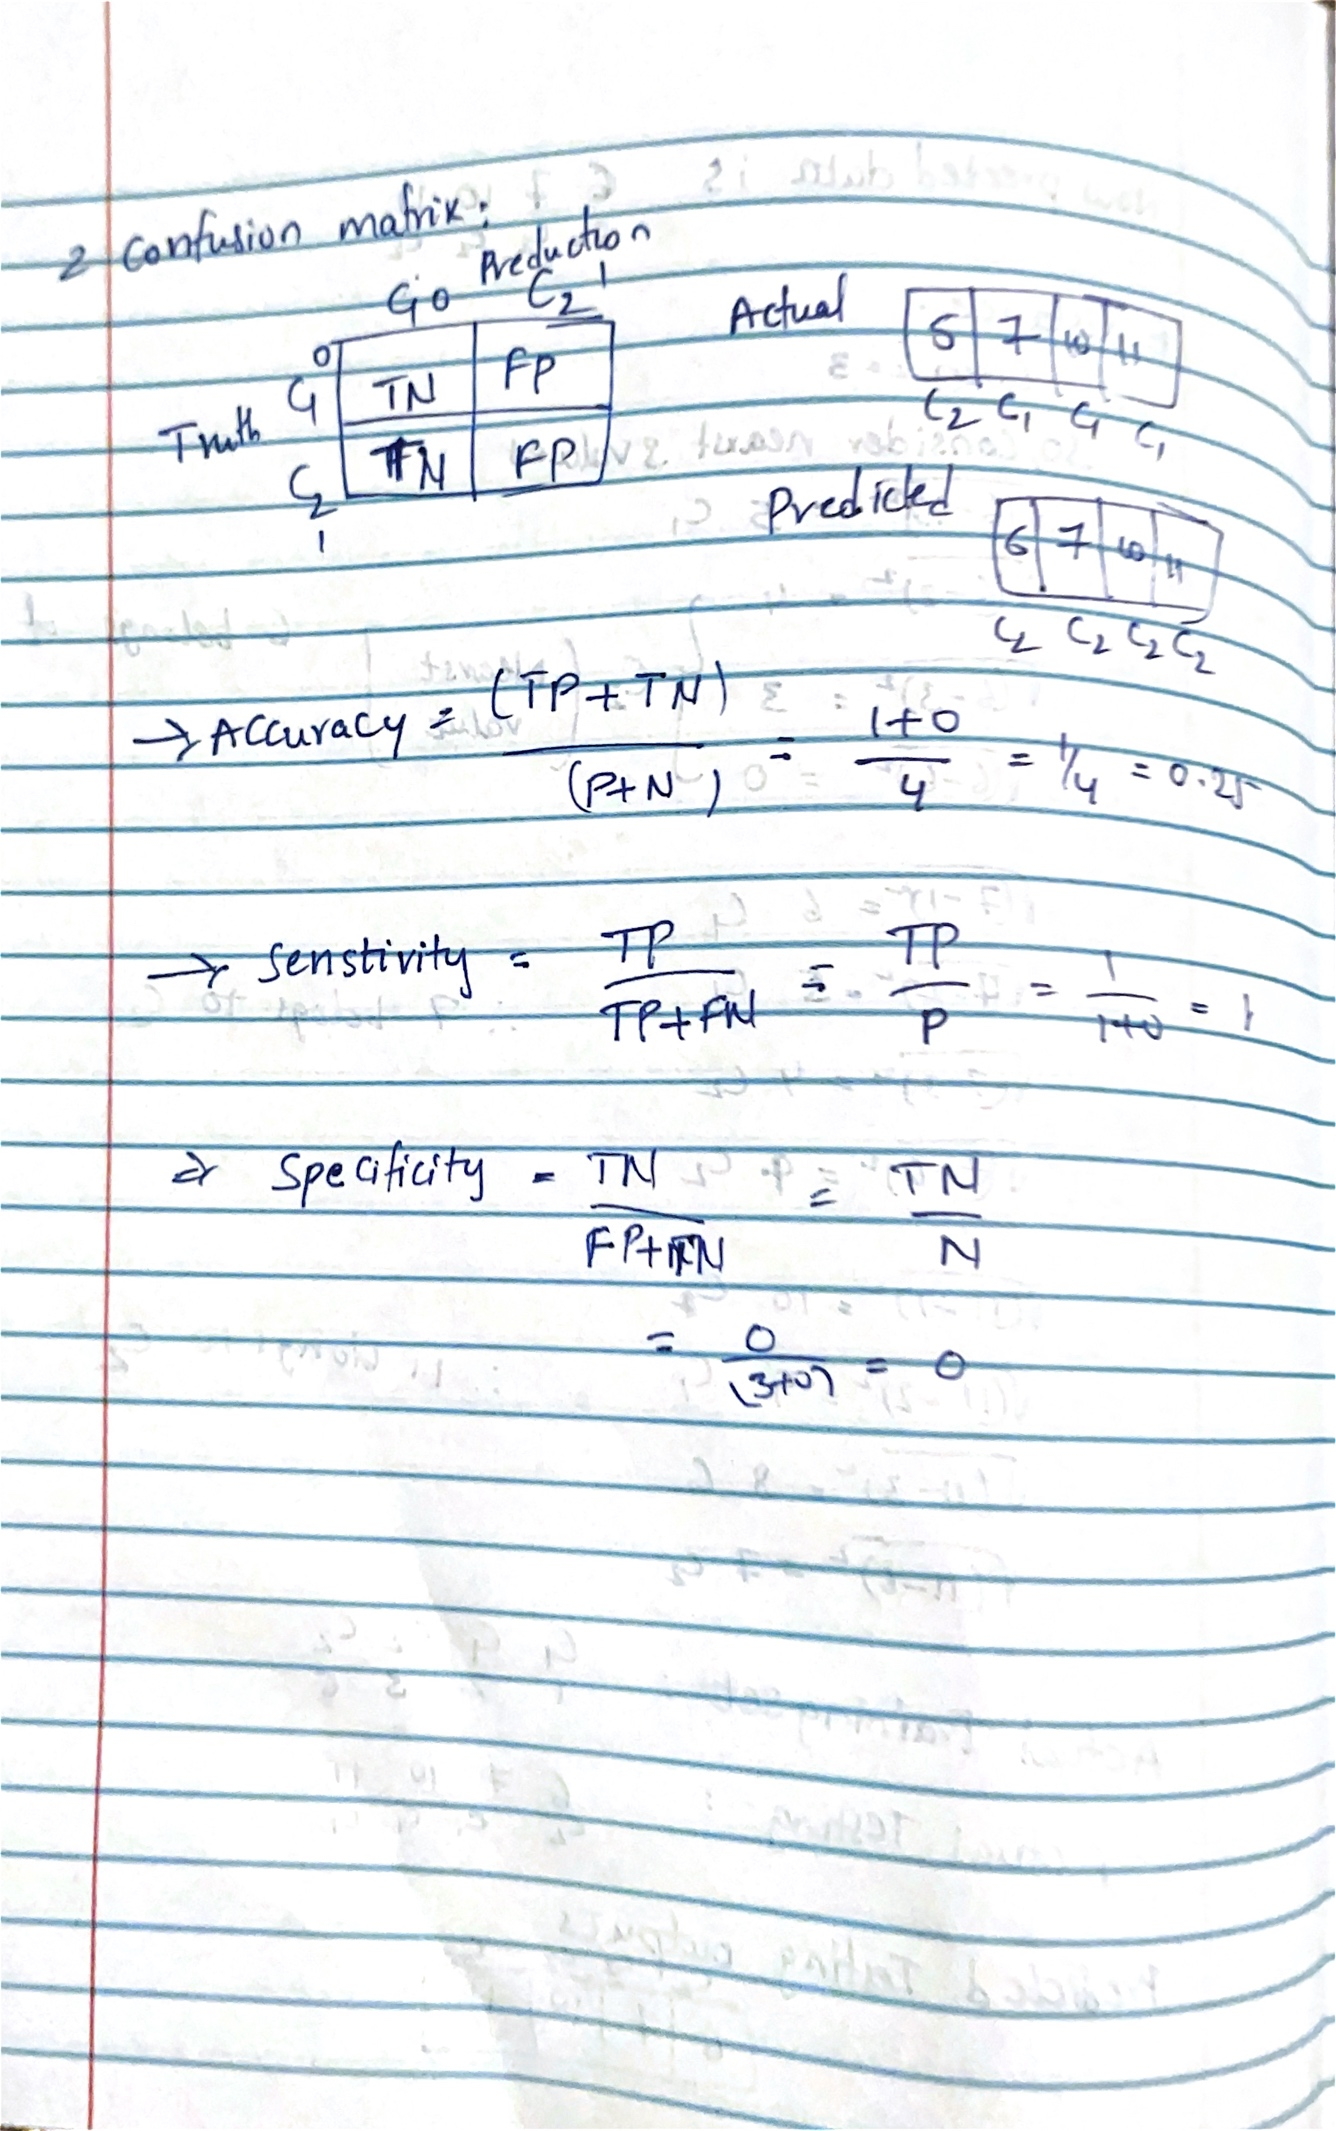 2 Confusion matrix:
Preduction
C1 0 C2 1
0
C1 TN FP
Truth
C2 FN FP
1
Actual 6 7 10 11
C2 C1 C1 C1
Predicted 6 7 10 11
C2 C2 C2 C2
→ Accuracy = (TP + TN) / (P+N) = 1+0 / 4 = 1/4 = 0.25
→ Senstivity = TP / TP + FN = TP / P = 1 / 1+0 = 1
→ Specificity = TN / FP + TN = TN / N
= 0 / (3+0) = 0